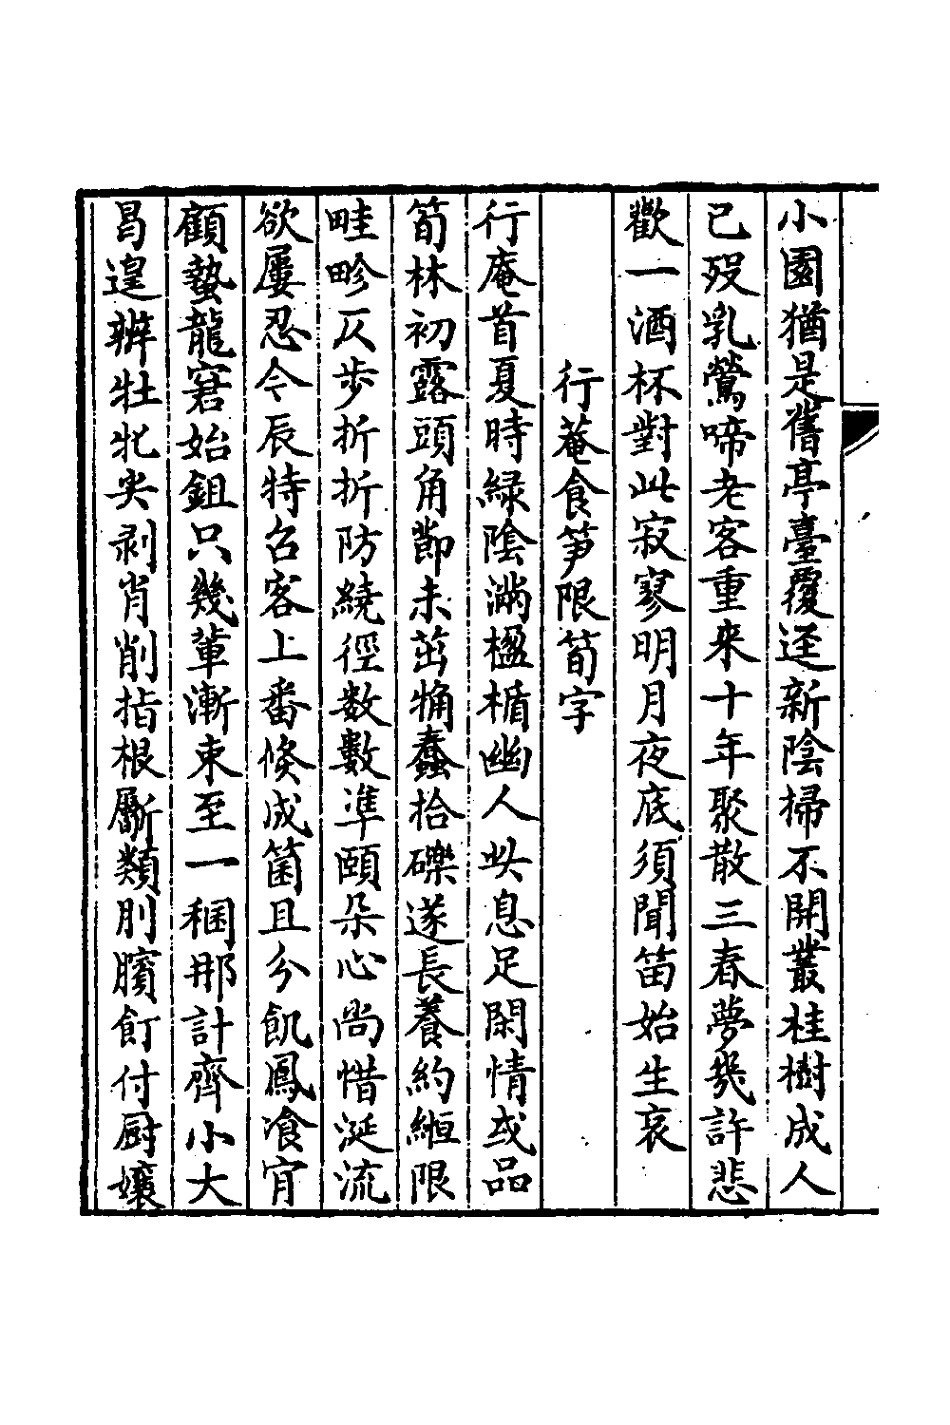 小園猶是舊亭臺覆逕新陰掃不開叢桂樹成人
已歿乳鶯啼老客重來十年聚散三春夢幾許悲
歡一酒杯對此寂寥明月夜底須聞笛始生哀
行菴食笋限筍字
行庵首夏時緑陰滿楹楯幽人此息足閑情或品
筍林初露頭角莭未茁觕蠢拾礫遂長養約縆限
畦畛仄步折折防繞徑数數準頤朶心尚惜涎流
欲屢忍今辰特召客上番倏成箇且分飢鳳飡肎
顧蟄龍窘始鉏只幾輩漸束至一稇那計齊小大
曷遑辨牡牝尖剥肖削指根斸類刖臏飣付厨孃